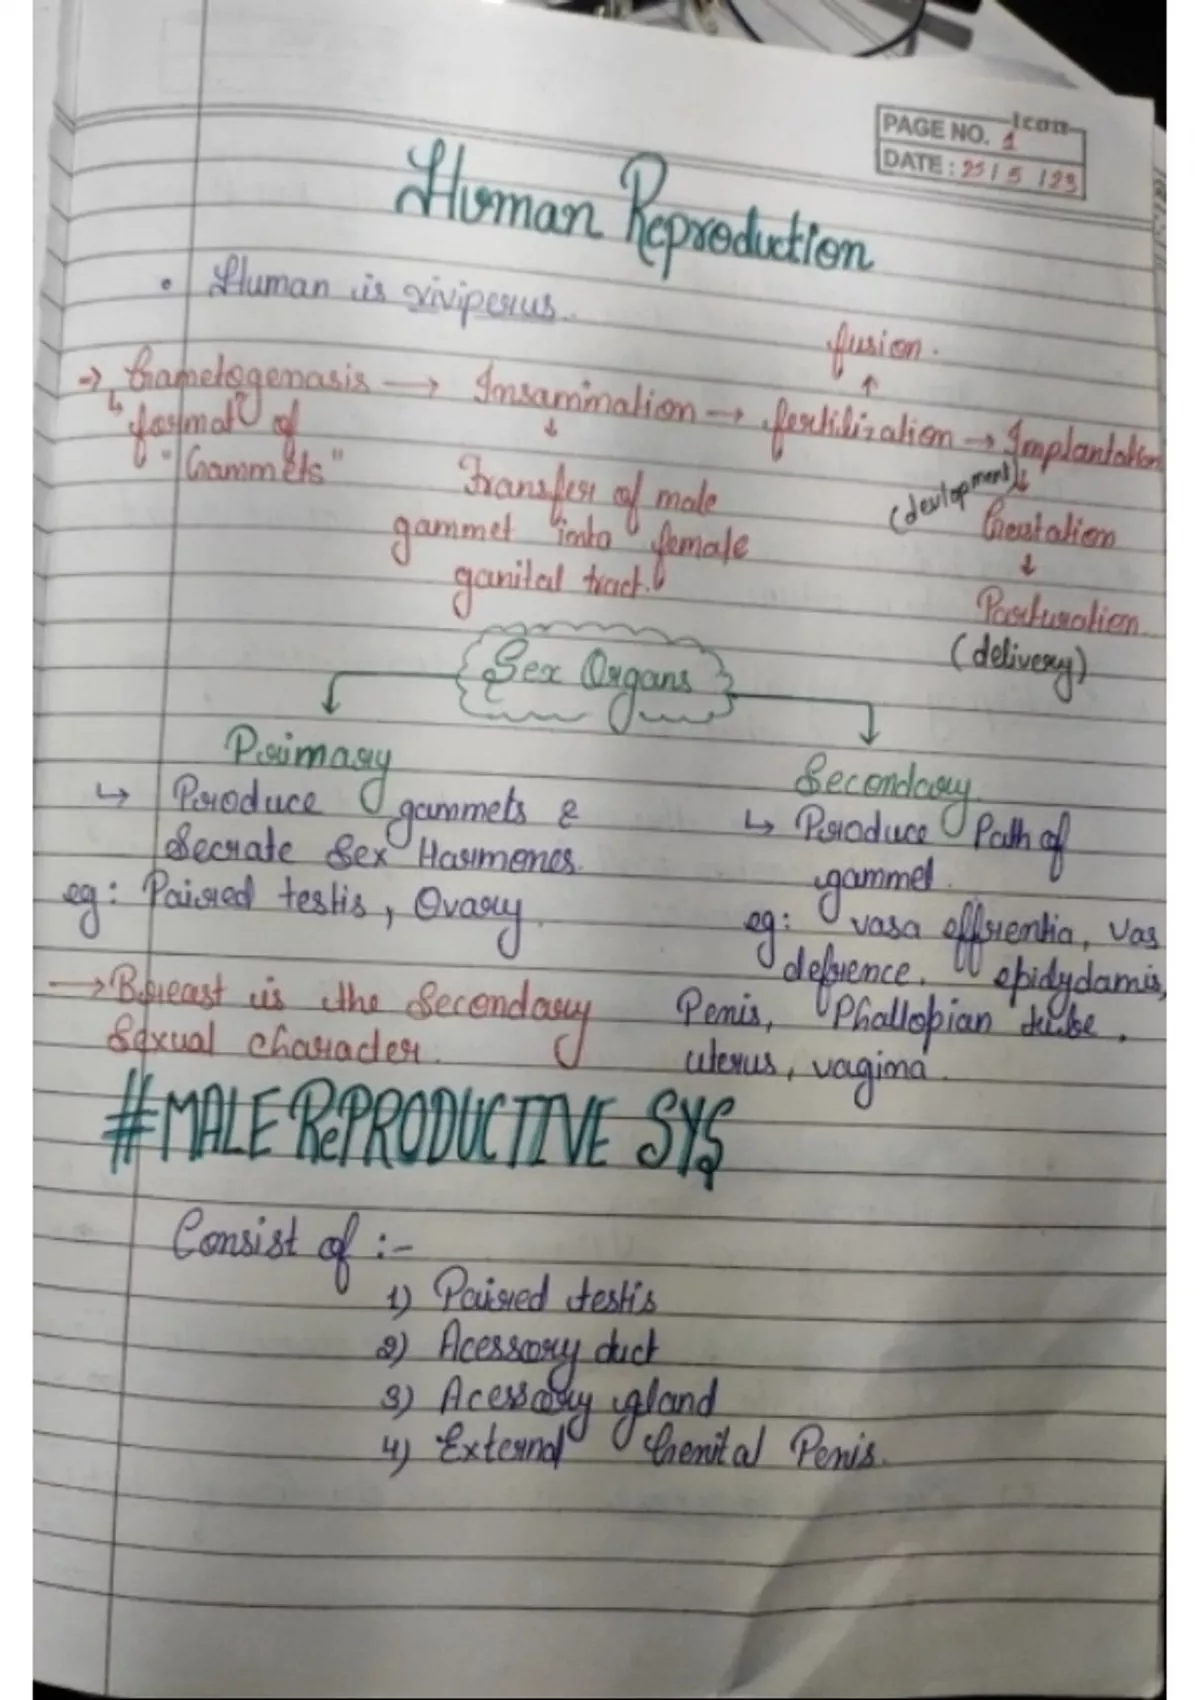 Icon
PAGE NO. 1
DATE: 25/5/23
Human Reproduction
• Human is viviperus.
fusion.
↑
→ Gametogenasis → Insammination → fertilization → Implantation
↳ format^n of "Gammets"
↓
Transfer of male
gammet into female
ganital tract.
(devlopment) ↓
Gestation
↓
Parturation.
(delivery)
Sex Organs
Primary
↳ Produce gammets &
Secrate Sex Harmones.
eg: Paired testis, Ovary.
Secondary
↳ Produce Path of
gammet.
eg: vasa effrentia, Vas
defrence, epidydamis,
Penis, Phallopian tube,
uterus, vagina.
→ Breast is the Secondary
Sexual character.
#MALE RePRODUCTIVE SYS
Consist of :-
1) Paired testis
2) Acessory duct
3) Acessory gland
4) External Genital Penis.